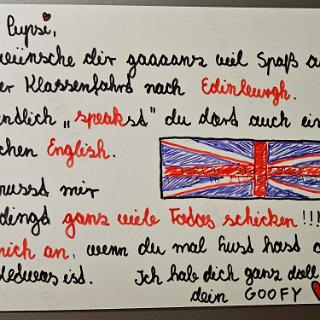 Pupsi,
wünsche dir gaaaanz viel Spaß au
er Klassenfahrt nach Edinburgh.
endlich „speakst" du dort auch ein
chen English.
musst mir
dingt ganz viele Fotos schicken!!!
mich an, wenn du mal Lust hast o
etwas ist. Ich hab dich ganz doll
dein GOOFY